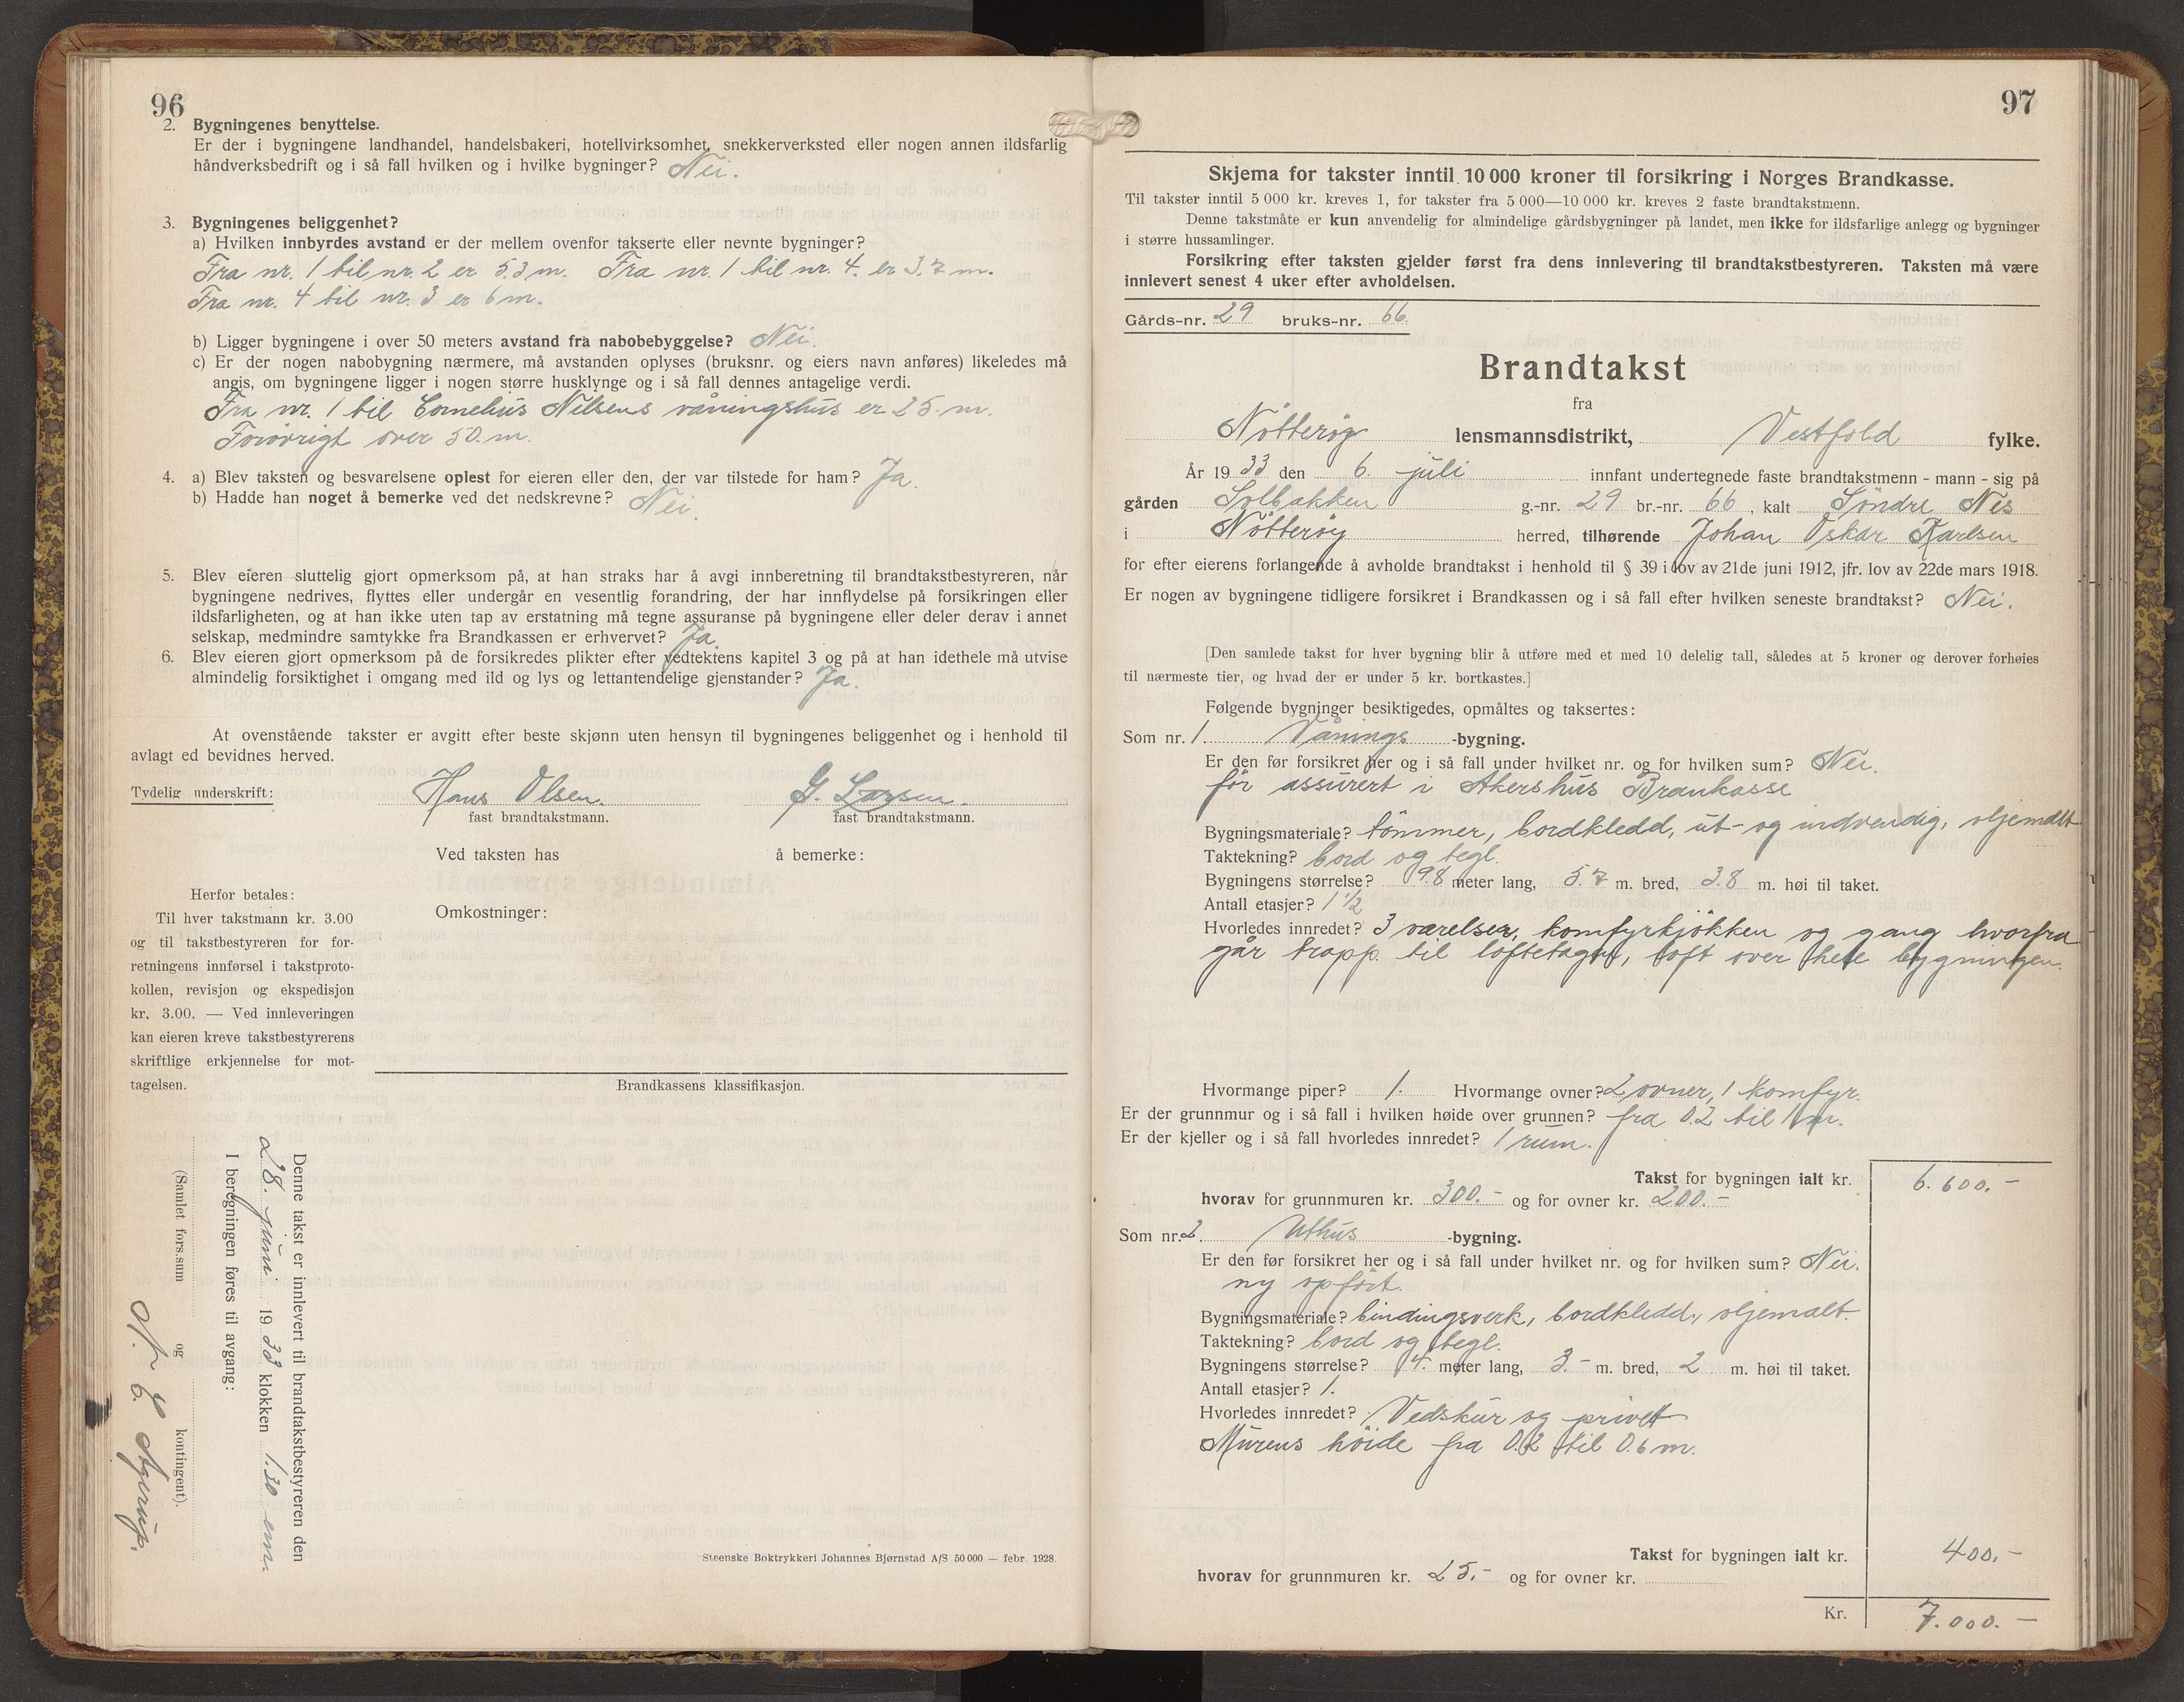 96
2. Bygningenes benyttelse.
Er der i bygningene landhandel, handelsbakeri, hotellvirksomhet, snekkerverksted eller nogen annen ildsfarlig
håndverksbedrift og i så fall hvilken og i hvilke bygninger? Nei.
3. Bygningenes beliggenhet?
a) Hvilken innbyrdes avstand er der mellem ovenfor takserte eller nevnte bygninger?
Fra nr. 1 til nr. 2 er 5.3 m. Fra nr. 1 til nr. 4. er 3.7 m.
Fra nr. 4 til nr. 3 er 6 m.
b) Ligger bygningene i over 50 meters avstand fra nabobebyggelse? Nei.
c) Er der nogen nabobygning nærmere, må avstanden oplyses (bruksnr. og eiers navn anføres) likeledes må
angis, om bygningene ligger i nogen større husklynge og i så fall dennes antagelige verdi.
Fra nr. 1 til Cornelius Nilsens våningshus er 25. m.
Forøvrigt over 50. m.
4. a) Blev taksten og besvarelsene oplest for eieren eller den, der var tilstede for ham? Ja.
b) Hadde han noget å bemerke ved det nedskrevne? Nei.
5. Blev eieren sluttelig gjort opmerksom på, at han straks har å avgi innberetning til brandtakstbestyreren, når
bygningene nedrives, flyttes eller undergår en vesentlig forandring, der har innflydelse på forsikringen eller
ildsfarligheten, og at han ikke uten tap av erstatning må tegne assuranse på bygningene eller deler derav i annet
selskap, medmindre samtykke fra Brandkassen er erhvervet? Ja.
6. Blev eieren gjort opmerksom på de forsikredes plikter efter vedtektens kapitel 3 og på at han idethele må utvise
almindelig forsiktighet i omgang med ild og lys og lettantendelige gjenstander? Ja.
At ovenstående takster er avgitt efter beste skjønn uten hensyn til bygningenes beliggenhet og i henhold til
avlagt ed bevidnes herved.
Tydelig underskrift: Hans Olsen. G. Larsen.
fast brandtakstmann. fast brandtakstmann.
Ved taksten has å bemerke:
Omkostninger:
Herfor betales:
Til hver takstmann kr. 3.00
og til takstbestyreren for for-
retningens innførsel i takstproto-
kollen, revisjon og ekspedisjon
kr. 3.00. — Ved innleveringen
kan eieren kreve takstbestyrerens
skriftlige erkjennelse for mot-
tagelsen.
Brandkassens klassifikasjon.
Denne takst er innlevert til brandtakstbestyreren den
28. juni 1933 klokken 1.30 em.
I beregningen føres til avgang:
(Samlet fors.sum og kontingent).
Steenske Boktrykkeri Johannes Bjørnstad A/S 50 000 — febr. 1928.
97
Skjema for takster inntil 10 000 kroner til forsikring i Norges Brandkasse.
Til takster inntil 5 000 kr. kreves 1, for takster fra 5 000—10 000 kr. kreves 2 faste brandtakstmenn.
Denne takstmåte er kun anvendelig for almindelige gårdsbygninger på landet, men ikke for ildsfarlige anlegg og bygninger
i større hussamlinger.
Forsikring efter taksten gjelder først fra dens innlevering til brandtakstbestyreren. Taksten må være
innlevert senest 4 uker efter avholdelsen.
Gårds-nr. 29 bruks-nr. 66.
Brandtakst
fra
Nøtterøy lensmannsdistrikt, Vestfold fylke.
År 1933 den 6. juli innfant undertegnede faste brandtakstmenn - mann - sig på
gården Solbakken g.-nr. 29 br.-nr. 66, kalt Søndre Nes
i Nøtterøy herred, tilhørende Johan Oskar Karlsen
for efter eierens forlangende å avholde brandtakst i henhold til § 39 i lov av 21de juni 1912, jfr. lov av 22de mars 1918.
Er nogen av bygningene tidligere forsikret i Brandkassen og i så fall efter hvilken seneste brandtakst? Nei.
[Den samlede takst for hver bygning blir å utføre med et med 10 delelig tall, således at 5 kroner og derover forhøies
til nærmeste tier, og hvad der er under 5 kr. bortkastes.]
Følgende bygninger besiktigedes, opmåltes og taksertes:
Som nr. 1. Vånings -bygning.
Er den før forsikret her og i så fall under hvilket nr. og for hvilken sum? Nei.
før assurert i Akershus Brankasse
Bygningsmateriale? tømmer, bordkledd, ut- og indvendig, oljemalt
Taktekning? bord og tegl.
Bygningens størrelse? 9.8 meter lang, 5.7 m. bred, 3.8 m. høi til taket.
Antall etasjer? 1 1/2
Hvorledes innredet? 3 værelser, komfyrkjøkken og gang hvorfra
går trapp. til loftetagen, loft over hele bygningen.
Hvormange piper? 1. Hvormange ovner? 2 ovner, 1 komfyr.
Er der grunnmur og i så fall i hvilken høide over grunnen? fra 0.2 til 1 m.
Er der kjeller og i så fall hvorledes innredet? 1 rum.
Takst for bygningen ialt kr. 6.600.-
hvorav for grunnmuren kr. 300.- og for ovner kr. 200.-
Som nr. 2. Uthus -bygning.
Er den før forsikret her og i så fall under hvilket nr. og for hvilken sum? Nei.
ny opført.
Bygningsmateriale? bindingsverk, bordkledd, oljemalt.
Taktekning? bord og tegl.
Bygningens størrelse? 4.- meter lang, 3.- m. bred, 2 m. høi til taket.
Antall etasjer? 1.
Hvorledes innredet? Vedskur og privett
Murens høide fra 0.2 til 0.6 m.
Takst for bygningen ialt kr. 400.-
hvorav for grunnmuren kr. 25.- og for ovner kr.
Kr. 7.000.-